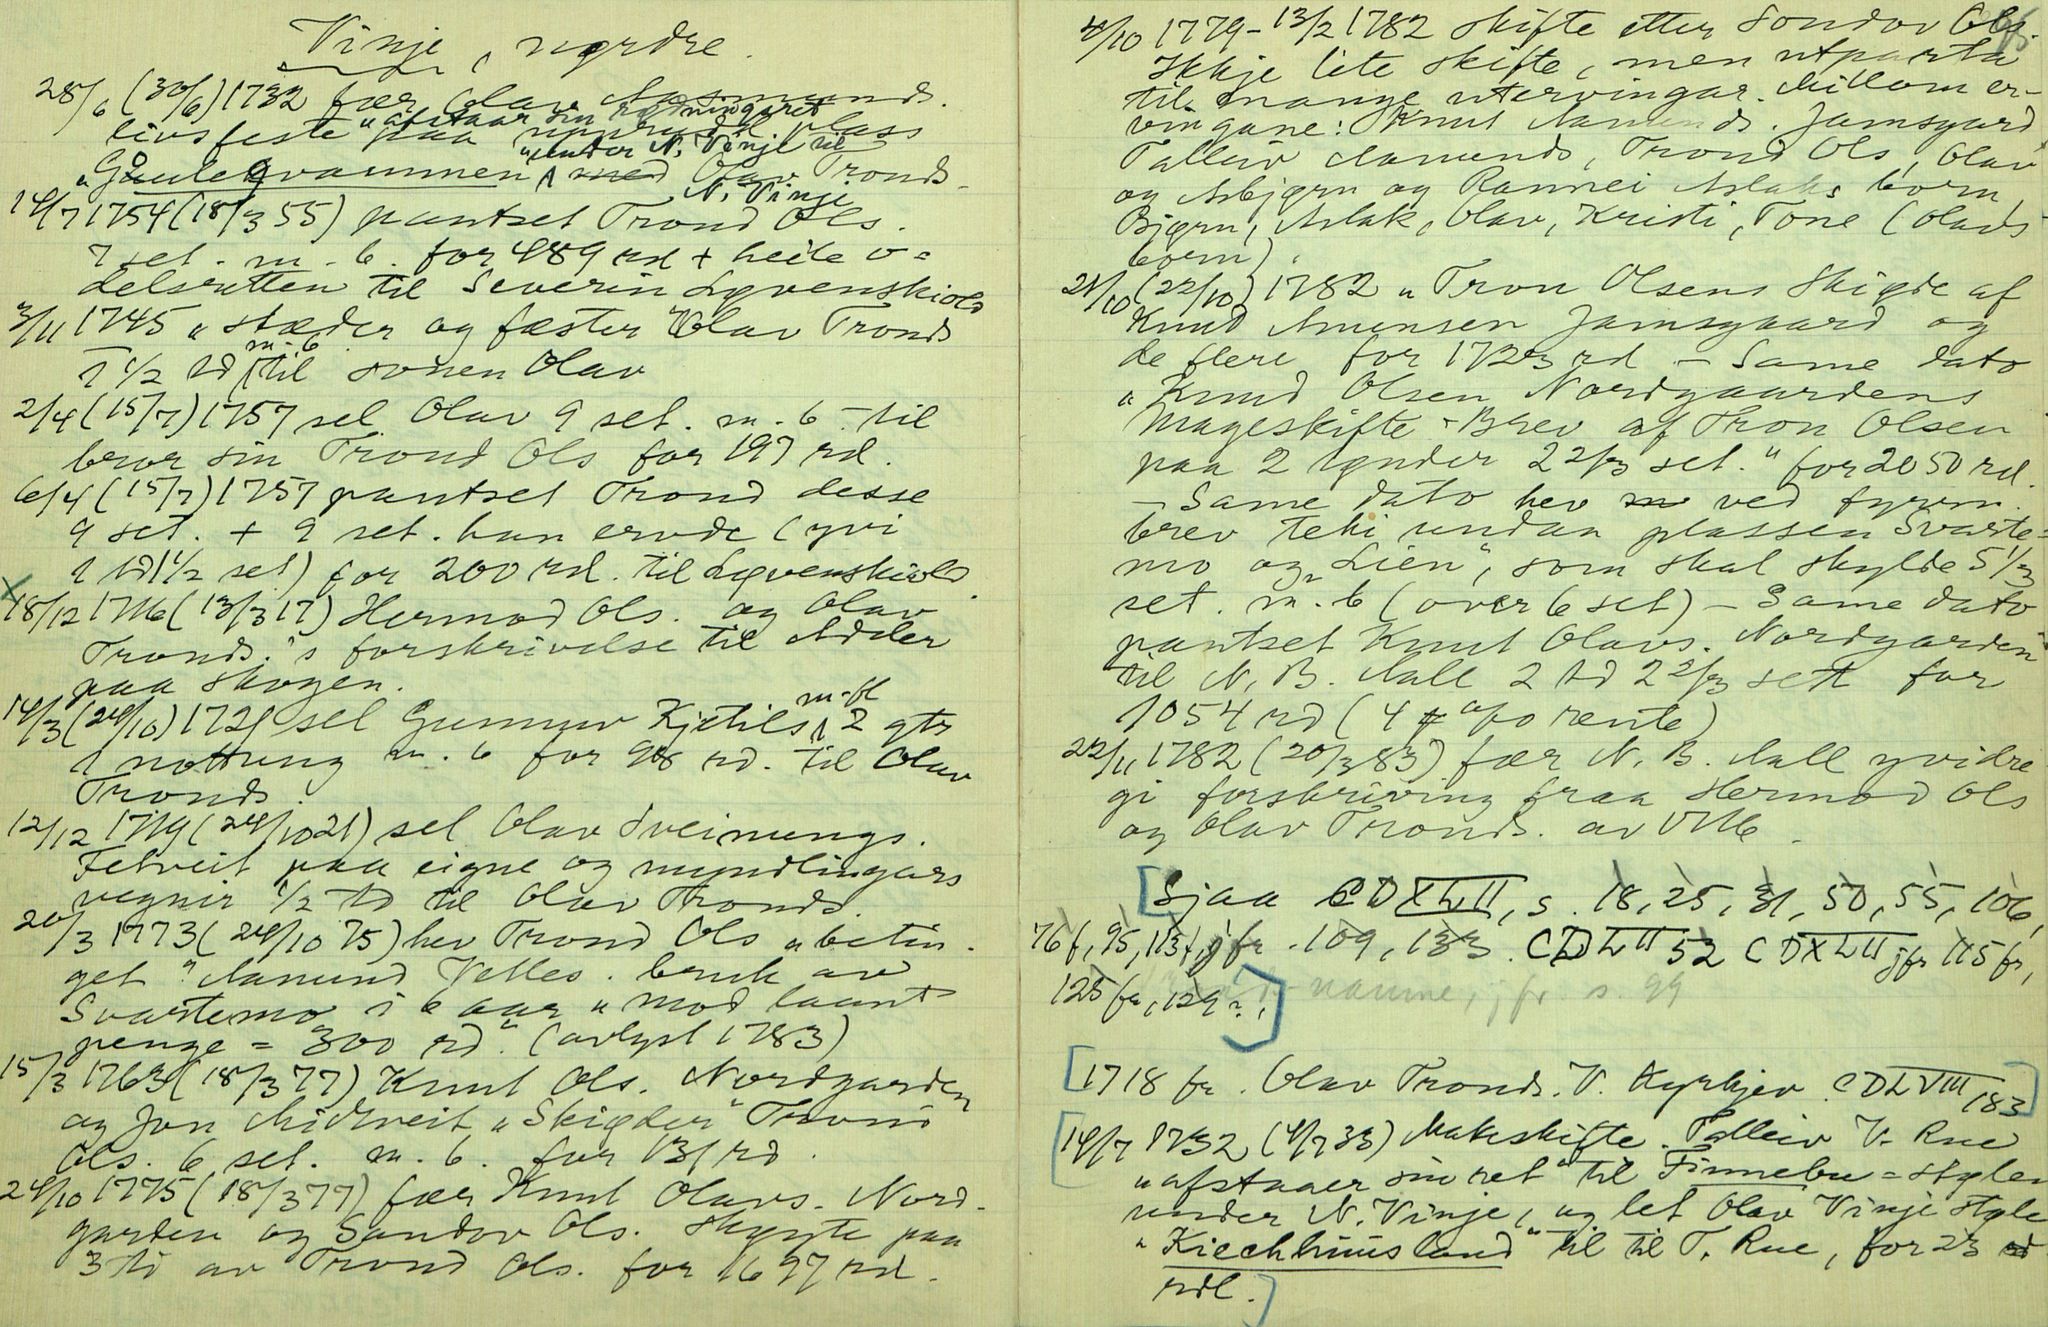 Vinje, nørdre.
28/6 (30/6) 1732 fær Olav Aamunds.
livsfeste "afstaar sin rødningsret
paa plass
"under N. Vinje til
"Gaulekvammen Olav Tronds.
N. Vinje
14/7 1754 (18/3 55) pantset Trond Ols.
7 set. m. b. for 489 rd + heile o=
delsretten til Severin Løvenskiold
3/11 1745 "stæder og fæster Olav Tronds
1 1/2 td m. b. til sonen Olav
2/4 (15/7) 1757 sel Olav 9 set. m. b. til
bror sin Trond Ols for 197 rd.
6/4 (15/7) 1757 pantset Trond desse
9 set. + 9 set. han ervde (yvi
1 td 1 1/2 set) for 200 rd. til Løvenskiold
X
18/12 1716 (13/3 17) Hermod Ols. og Olav
Tronds.'s forskrivelse til Adeler
paa skogen.
14/3 (24/10) 1721 sel Gunnuv Kjetils m. fl. 2 gtr
1 nottung m. b. for 98 rd. til Olav
Tronds.
12/12 1719 (24/10 21) sel Olav Sveinungs.
Fetveit paa eigne og myndlingars
vegnir 1/2 td til Olav Tronds.
20/3 1773 (24/10 75) hev Trond Ols "betin-
get" Aamund Velles. bruk av
Svartemo i 6 aar "mod laant
penge = 300 rd." (avlyst 1783)
15/3 1763 (18/3 77) Knut Ols. Nordgarden
og Jon Midtveit "Skiøder" Trond
Ols. 6 set. m. b. for 131 rd.
24/10 1775 (18/3 77) fær Knut Olavs. Nord-
garden og Sandov Ols. skøyte paa
3 td av Trond Ols. for 1697 rd.
4/10 1779 - 13/2 1782 skifte etter Sondov Ols.
Ikkje lite skifte, men utparta
til mange utervingar. Millom er-
vingane: Knut Aamunds. Jamsgard
Talleiv Aamunds, Trond Ols, Olav
og Asbjørn og Rannei Aslaks born,
Bjørn, Aslak, Olav, Kristi, Tone (Olavs
born).
21/10 (22/10) 1782 "Tron Olsens Skiøde af
Knud Amunsen Jamsgaard og
de flere for 1723 rd - Same dato
"Knud Olsen Nordgaardens
Mageskifte-Brev af Tron Olsen
paa 2 tønder 2 2/3 set." for 2050 rd.
- Same dato hev ved fyrem.
brev teki undan plassen Svarte=
mo og "Lien", som skal skylde 5 1/3
set. m. b (over 6 set) - Same dato
pantset Knut Olavs. Nordgarden
til N. B. Aall 2 td 2 2/3 sett for
1054 rd (4 % rente)
22/11 1782 (20/3 83) fær N. B. Aall yvidre
gi forskriving fraa Hermod Ols
og Olav Tronds. av 1716.
[Sjaa CDXLII, s. 18, 25, 31, 50, 55, 106,
76 f, 95, 113 f, jfr. 109, 133. CDLII 52 CDXLII jfr 115 fr,
125 fr, 129?,]
namne, jfr. s. 99
[1718 fr. Olav Tronds. V. Kyrkjev. CDLVIII 183]
[14/7 1732 (4/7 33) Makeskifte. Talleiv V. Rue
"afstaaer sin ret" til Finnebu=støler
under N. Vinje, og let Olav Vinje støle
"Kiechhuusland" til til T. Rue, for 23
rdl.]